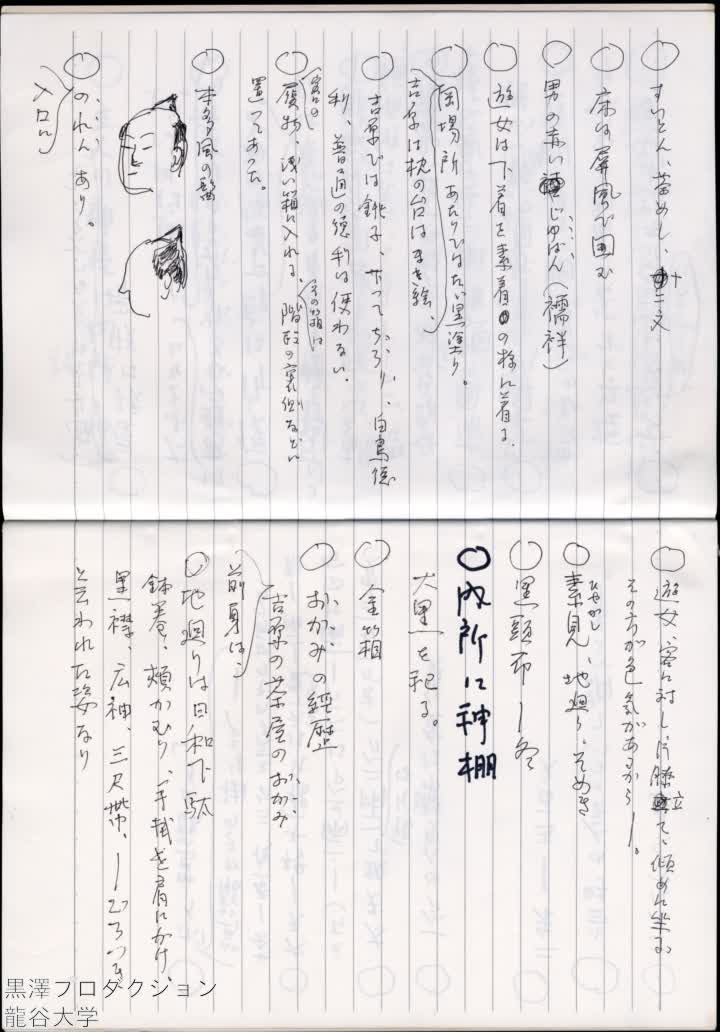 ○すいとん、茶めし、十二文
○床は屏風で囲む
○男の赤いじゅばん(襦袢)
○遊女は下着を素着の様に着る。
○岡場所あたりではたい黒塗り。
吉原は枕の台はまき絵、
○吉原では銚子、サってちろり、白鳥徳
利、普通の徳利は使わない。
○客の履物、浅い箱に入れる、その箱は階段の裏側などに
置いてあった。
○本多風の髷
○のれんあり。
入口に
○遊女、客に対し、片膝立て、傾めに坐る
その方が色気があるから―。
○素見、地廻り、そめき
ひやかし
○黒頭巾―冬
○内所に神棚
大黒を祀る。
○金箱
○おかみの経歴
吉原の茶屋のおかみ
前身は
○地廻りは日和下駄
鉢巻、頬かむり、手拭を肩にかけ、
黒襟、広袖、三尺帯、―ごろつき
と云われた姿なり
黒澤プロダクション
龍谷大学